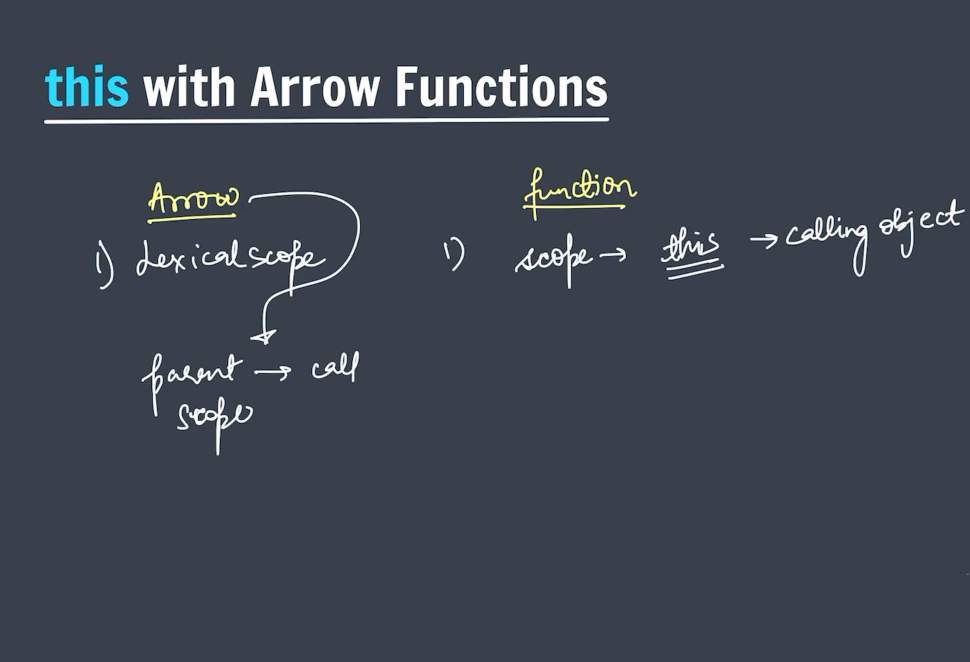 this with Arrow Functions
Arrow
1) Lexical scope
parent → call
scope
function
1) scope → this → calling object